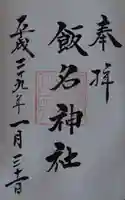 奉拝
飯名神社
平成二十九年一月三十日